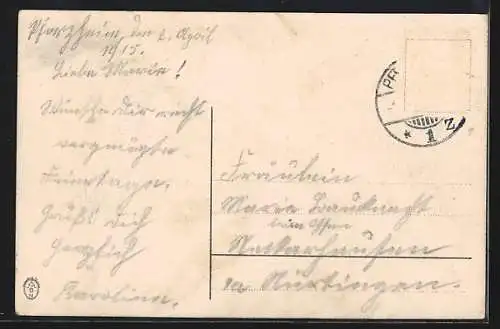 Pforzheim, den 2. April
1915.
Liebe Marie!
Wünsche dir recht
vergnügte
Feiertage.
Grüßt dich
herzlich
Karolina.
PF
* 1 Z
Fräulein
Marie Bauknecht
Neckarhausen
Nürtingen.